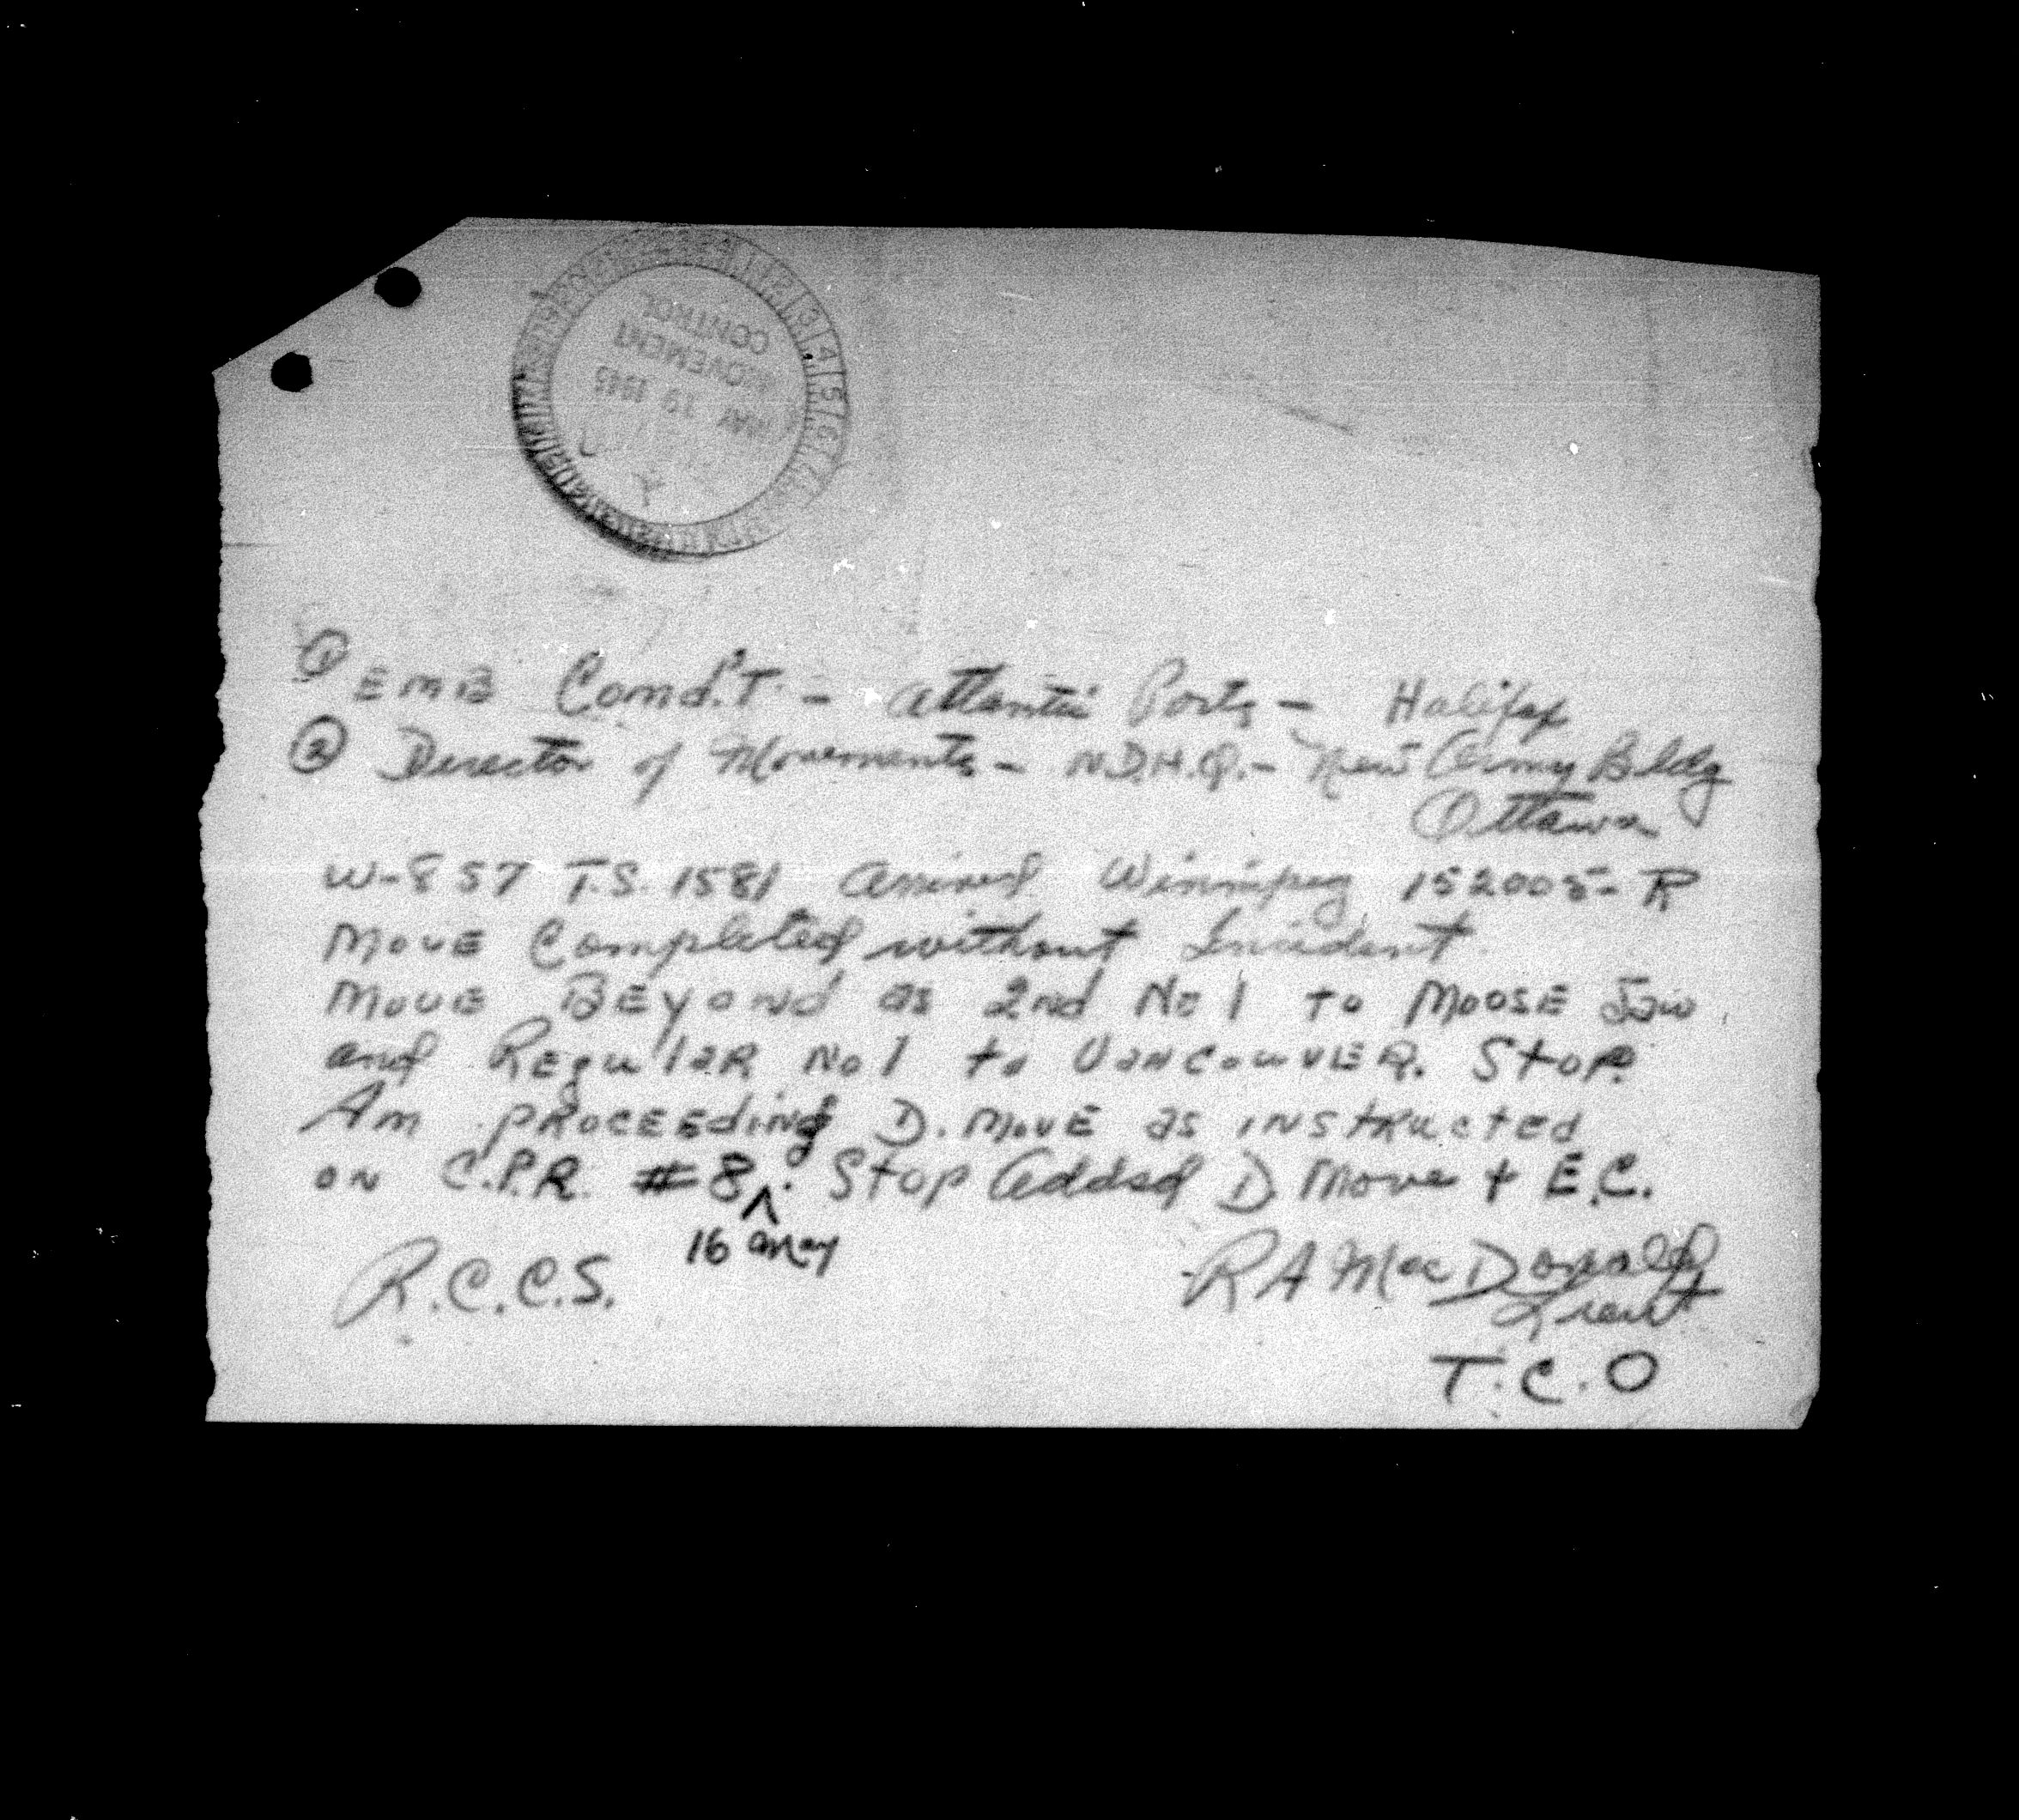 CONTROL
MOVEMENT
MAY 19 1945
① EMB Comd.T. - Atlantic Ports - Halifax
② Director of Movements - N.D.H.Q. - New Army Bldg
Ottawa
W-857 T.S. 1581 arrived Winnipeg 152005-R
MOVE Completed without Incident.
MOVE BEYOND as 2nd No 1 to MOOSE JAW
and REGULAR No 1 to VANCOUVER. STOP.
Am PROCEEDING D. MOVE as INSTRUCTED
ON C.P.R. #8 ^. Stop Added D. Move + E.C.
16 May
R.C.C.S.
R A MacDonald
Lieut
T.C.O